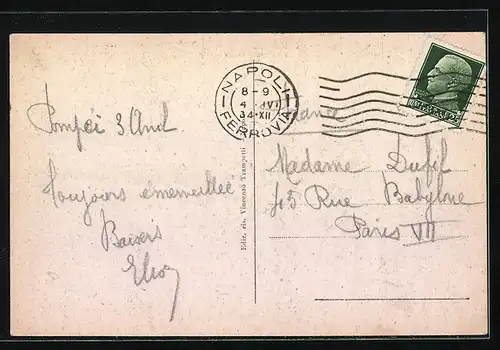 NAPOLI
8-9
4 IVI
34·XII
FERROVIA
Pompéi 3 Avril
Toujours émerveillée
Baisers
Madame Dufil
45 Rue Babylone
Paris VII
Ediz. ris. Vincenzo Trampetti